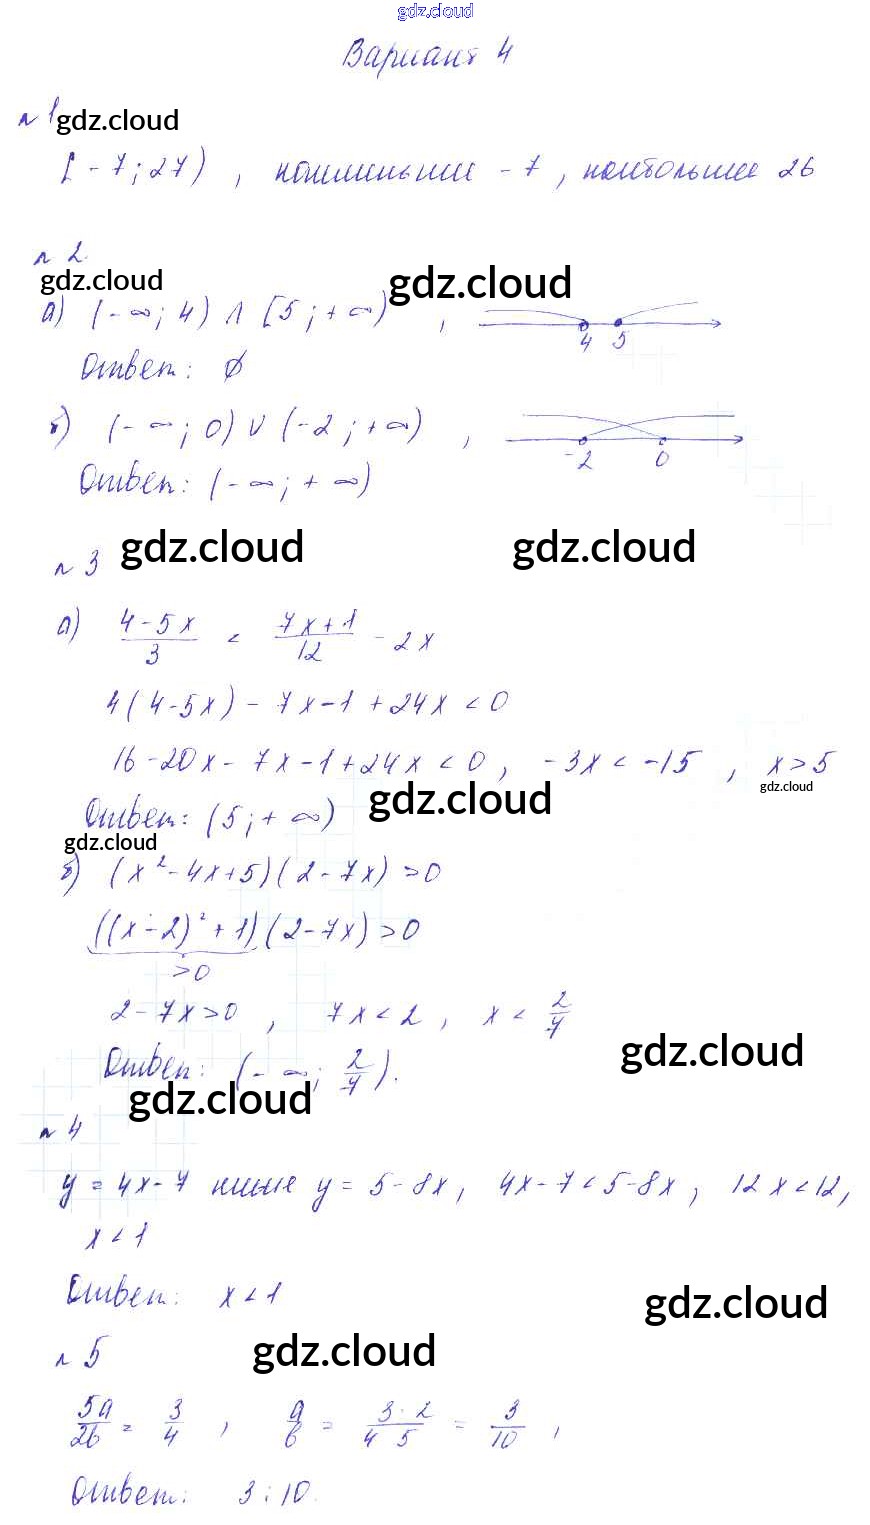 gdz.cloud
Вариант 4
№1 gdz.cloud
[-7; 27), наименьшее -7, наибольшее 26
№2
gdz.cloud gdz.cloud
а) (-∞; 4) ∧ [5; +∞), 4 5
Ответ: ∅
б) (-∞; 0) ∨ (-2; +∞), -2 0
Ответ: (-∞; +∞)
№3 gdz.cloud gdz.cloud
а) (4-5x)/3 < (7x+1)/12 - 2x
4(4-5x) - 7x-1+24x < 0
16-20x-7x-1+24x < 0, -3x < -15, x > 5
gdz.cloud gdz.cloud
Ответ: (5; +∞)
gdz.cloud
б) (x²-4x+5)(2-7x) > 0
((x-2)²+1)(2-7x) > 0
>0
2-7x > 0, 7x < 2, x < 2/7
gdz.cloud
Ответ: (-∞; 2/7).
gdz.cloud
№4
y = 4x-7 ниже y = 5-8x, 4x-7 < 5-8x, 12x < 12,
x < 1
Ответ: x < 1
gdz.cloud
№5 gdz.cloud
5a/2b = 3/4, a/b = (3·2)/(4 5) = 3/10,
Ответ: 3:10.